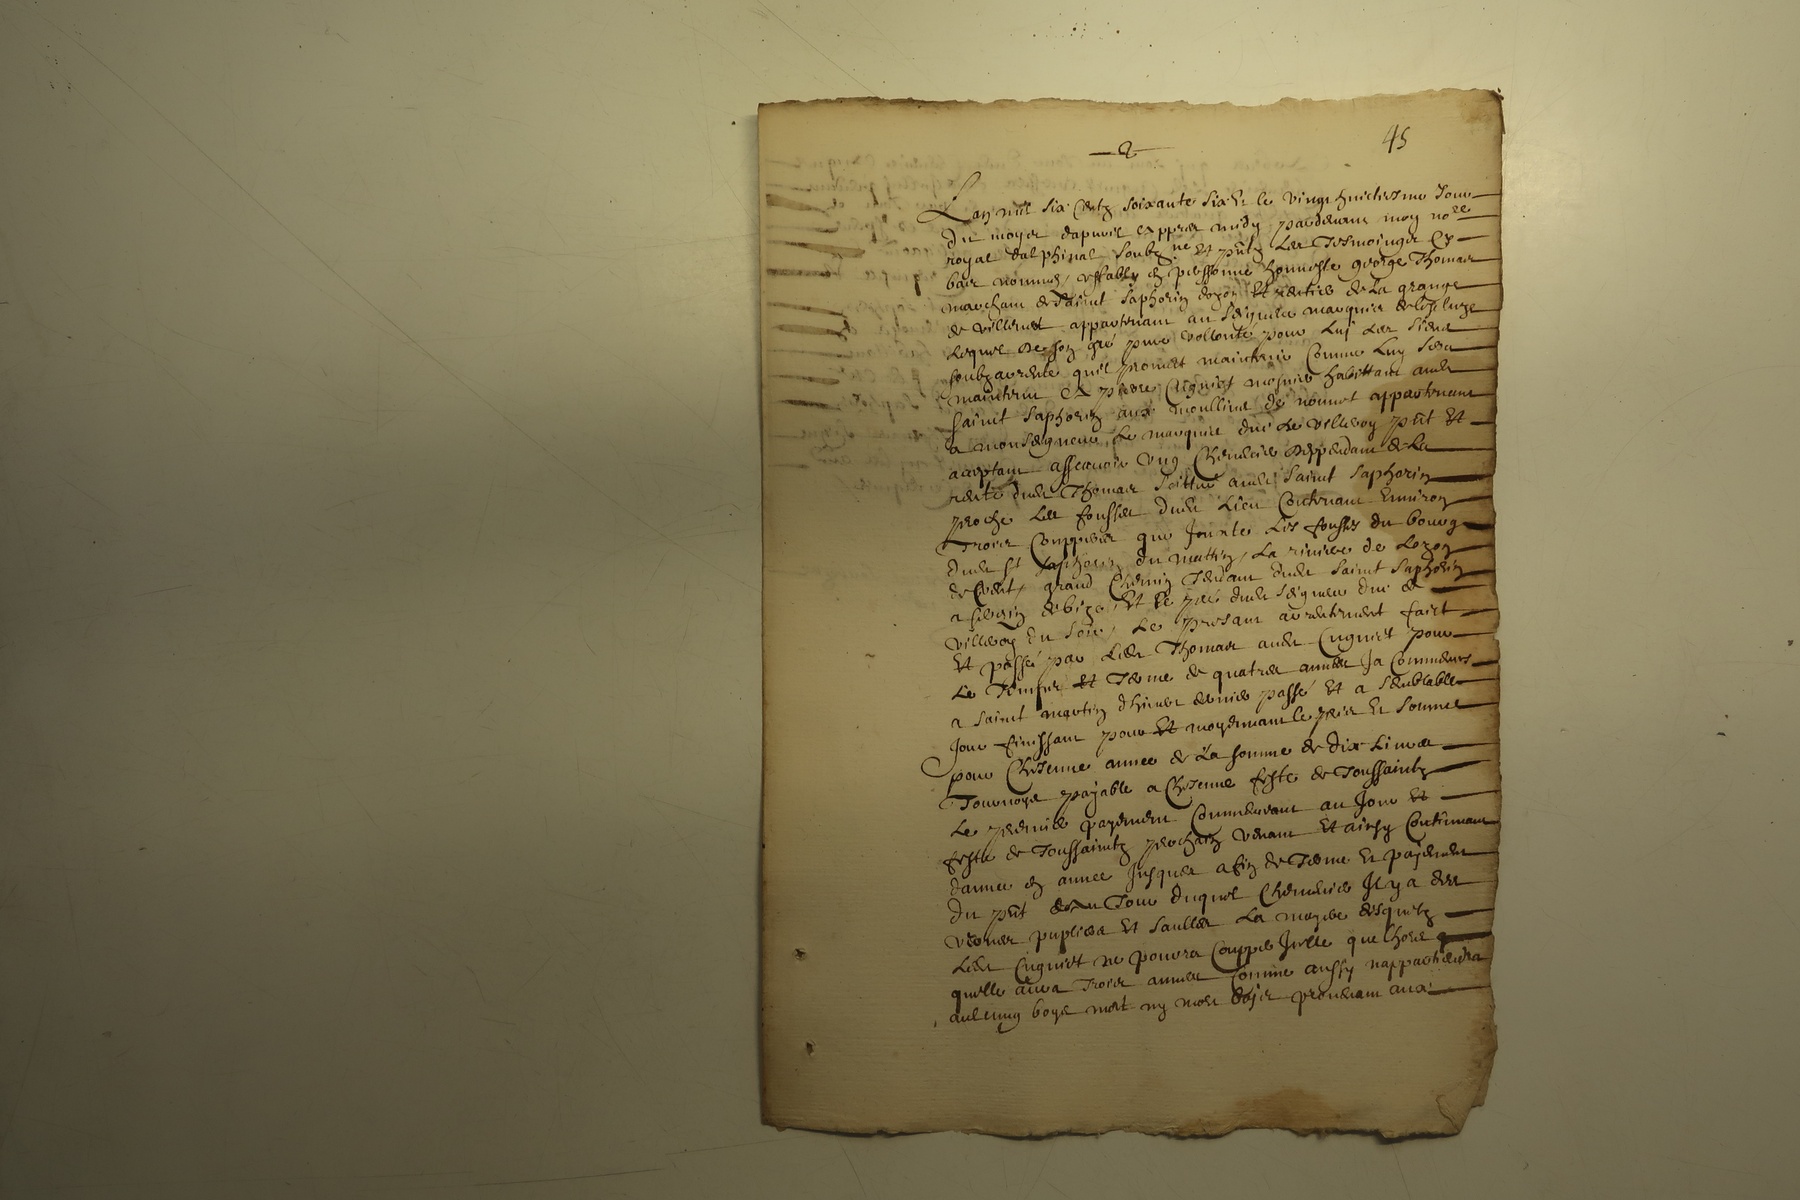 45
2
Lan mil six centz soixante six et le vingt huictiesme jour
du moys dapvril appres midy pardevant moy no.re
royal dalphinal soubz.ne et pñtz les tesmoingz cy
bas nommes, estably en personne honneste george Thomas
marchant de Saint Saphorin dozon et rentier de La grange
de villenet appartenant au Seigneur marquis de
Lequel de son gré pure vollonté pour Luj Les Siens
soubzarrente quil promet maintenir comme Luy sera
maintenu a pierre Cuguet mosnier habittant aud
saint Saphorin aux moullins de nonnet appartenant
a monseigneur Le marquis duc de villeroy pñt et
acceptant assavoir ung Cheneuier deppendant de La
rente dud Thomas Scittué aud Saint Saphorin
proche Les fousses dud Lieu Contenant Environ
Trois Couppees que Jouxte Les fousses du bourg
dud St Saphorin du mattin, La riuiere de Lozon
de vent, grand Chemin Tendant dud Saint Saphorin
a de bize, Et le pré dud Seigneur duc de
villeroy du soir, Le presant arrentement faict
Et passé par Led Thomas aud Cuguet pour
Le Temps et Terme de quatre annees Ja Commences
a Saint martin dhiuer dernier passé Et a Semblable
Jour finissant pour Et moyennant le prix Et Somme
pour Chascune annee de La somme de dix Liures
Tournoys payable a Chascune feste de Toussaintz
Le premier payement Commenceant au Jour Et
feste de Toussaintz prochain venant Et ainsy Continuant
dannee en annee Jusques a fin de Terme Et payement
du pñt autour duquel Cheneuier Il y a des
vernes puplies Et saulles La mayere desquelz
Led Cuguet ne pourra Coupper Jcelle que lhors
quelle aura Trois annees Comme aussy nappartiendra
aulcung boys mort ny mort prouenant aux